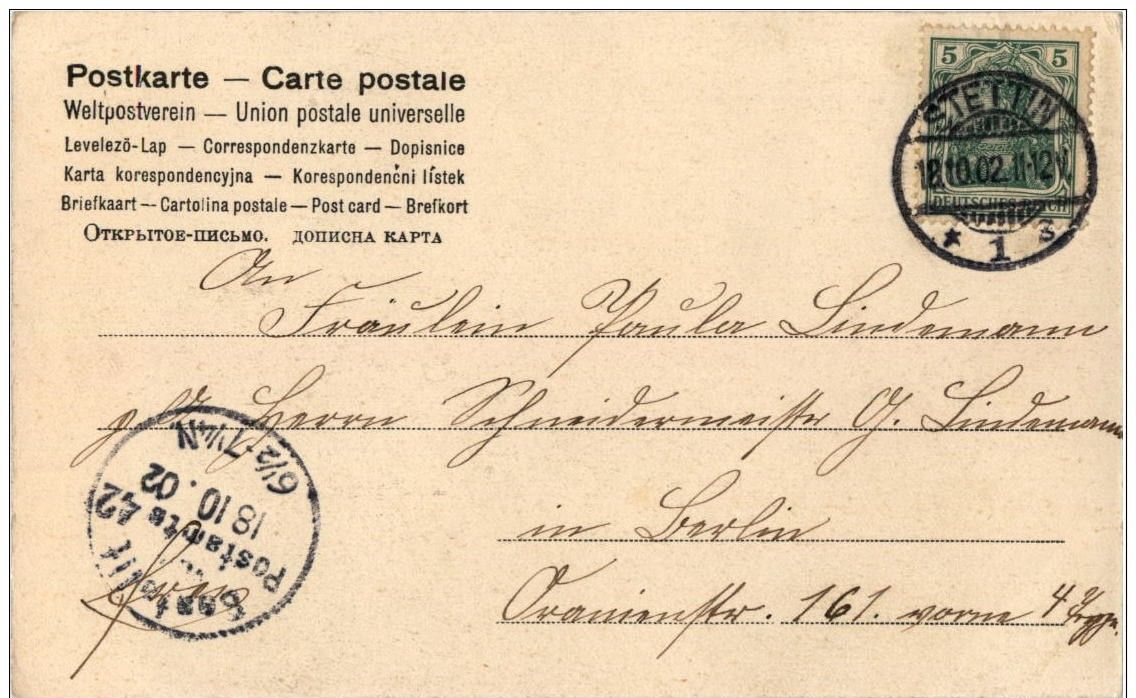 Postkarte — Carte postale
Weltpostverein — Union postale universelle
Levelező-Lap — Correspondenzkarte — Dopisnice
Karta korespondencyjna — Korespondenčni lístek
Briefkaart — Cartolina postale — Post card — Brefkort
Открытое-письмо. дописна карта
5 5
STETTIN
18.10.02.11-12V.
DEUTSCHES REICH
* 1 s
An
Fräulein Paula Lindemann
Herrn Schneidermeistr G. Lindemann
in Berlin
Oranienstr. 161. vorne 4
Bestellt
Postamte 42
18 10 . 02
6½-7¼N.